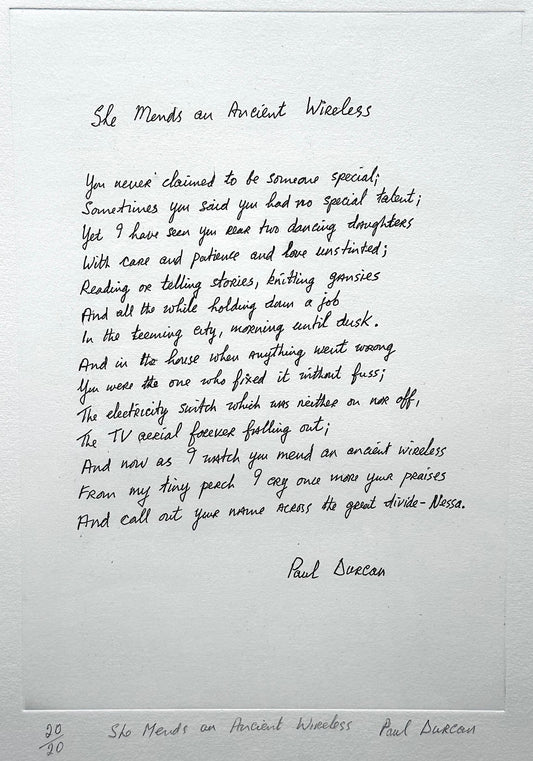 She Mends an Ancient Wireless
You never claimed to be someone special;
Sometimes you said you had no special talent;
Yet I have seen you rear two dancing daughters
With care and patience and love unstinted;
Reading or telling stories, knitting gansies
And all the while holding down a job
In the teeming city, morning until dusk.
And in the house when anything went wrong
You were the one who fixed it without fuss;
The electricity switch which was neither on nor off,
The TV aerial forever falling out;
And now as I watch you mend an ancient wireless
From my tiny perch I cry once more your praises
And call out your name across the great divide-Nessa.
Paul Durcan
20/20 She Mends an Ancient Wireless Paul Durcan